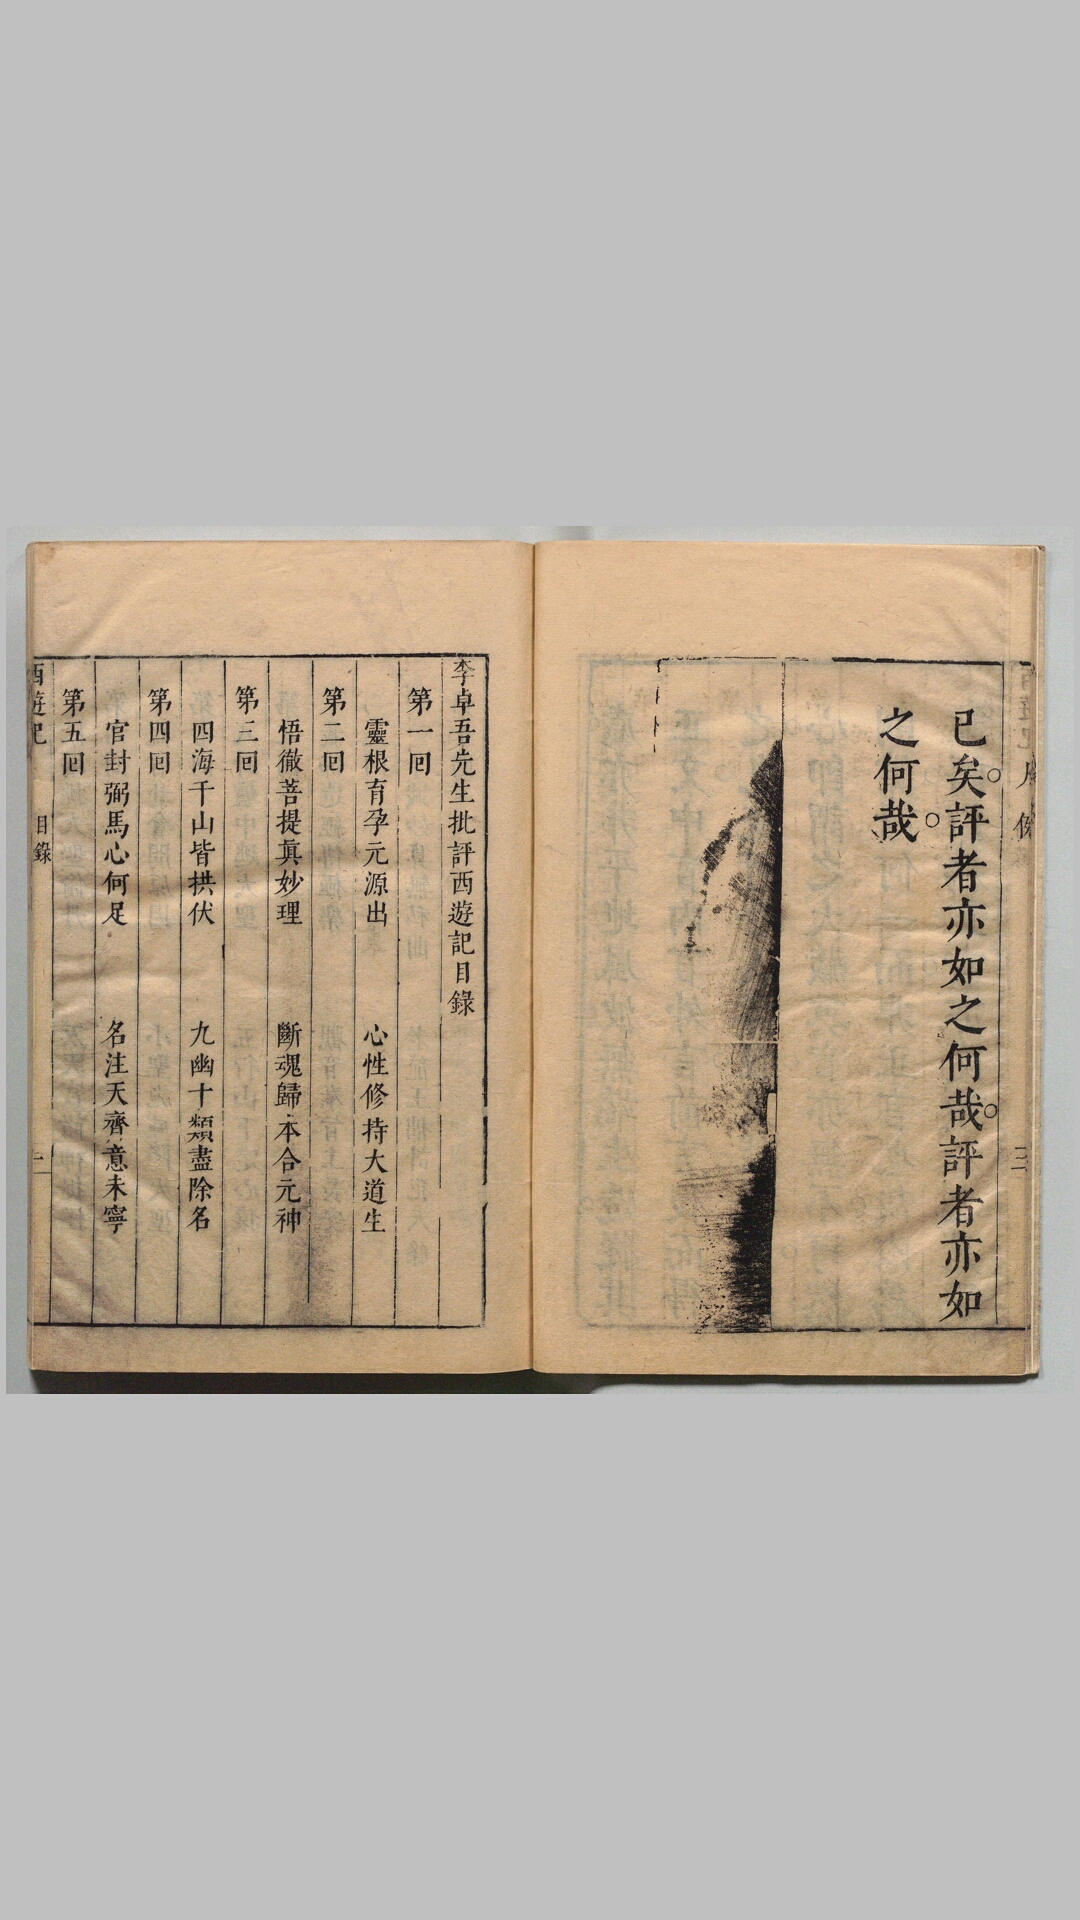 已矣評者亦如之何哉評者亦如
之何哉
李卓吾先生批評西遊記目錄
第一囘
靈根育孕元源出　心性修持大道生
第二囘
悟徹菩提眞妙理　斷魂歸本合元神
第三囘
四海千山皆拱伏　九幽十類盡除名
第四囘
官封弼馬心何足　名注天齊意未寧
第五囘
西遊記　目錄　一